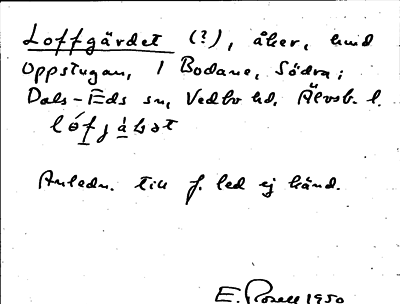 Loffgärdet (?), åker, hmd
Oppstugan, 1 Bodane, Södra;
Dals-Eds sn, Vedbo hd, Älvsb. l.
Anledn. till f. led ej känd.
E. Rosell 1950